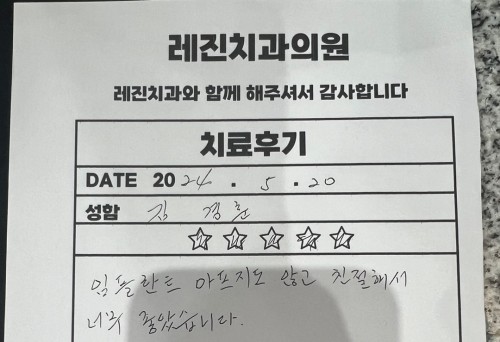 레진치과의원
레진치과와 함께 해주셔서 감사합니다
치료후기
DATE 2024.5.20
성함 김경훈
임플란트 아프지도 않고 친절해서
너무 좋았습니다.